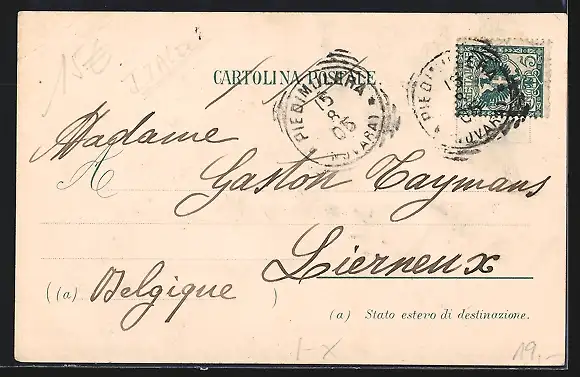 15€
CARTOLINA POSTALE.
PIEDIMULERA
15
8
05
(NOVARA)
PIEDIMULERA
15
8
05
(NOVARA)
5
Madame
Gaston Taymans
Lierneux
((a) Belgique )
(a) Stato estero di destinazione.
1-x
19.-